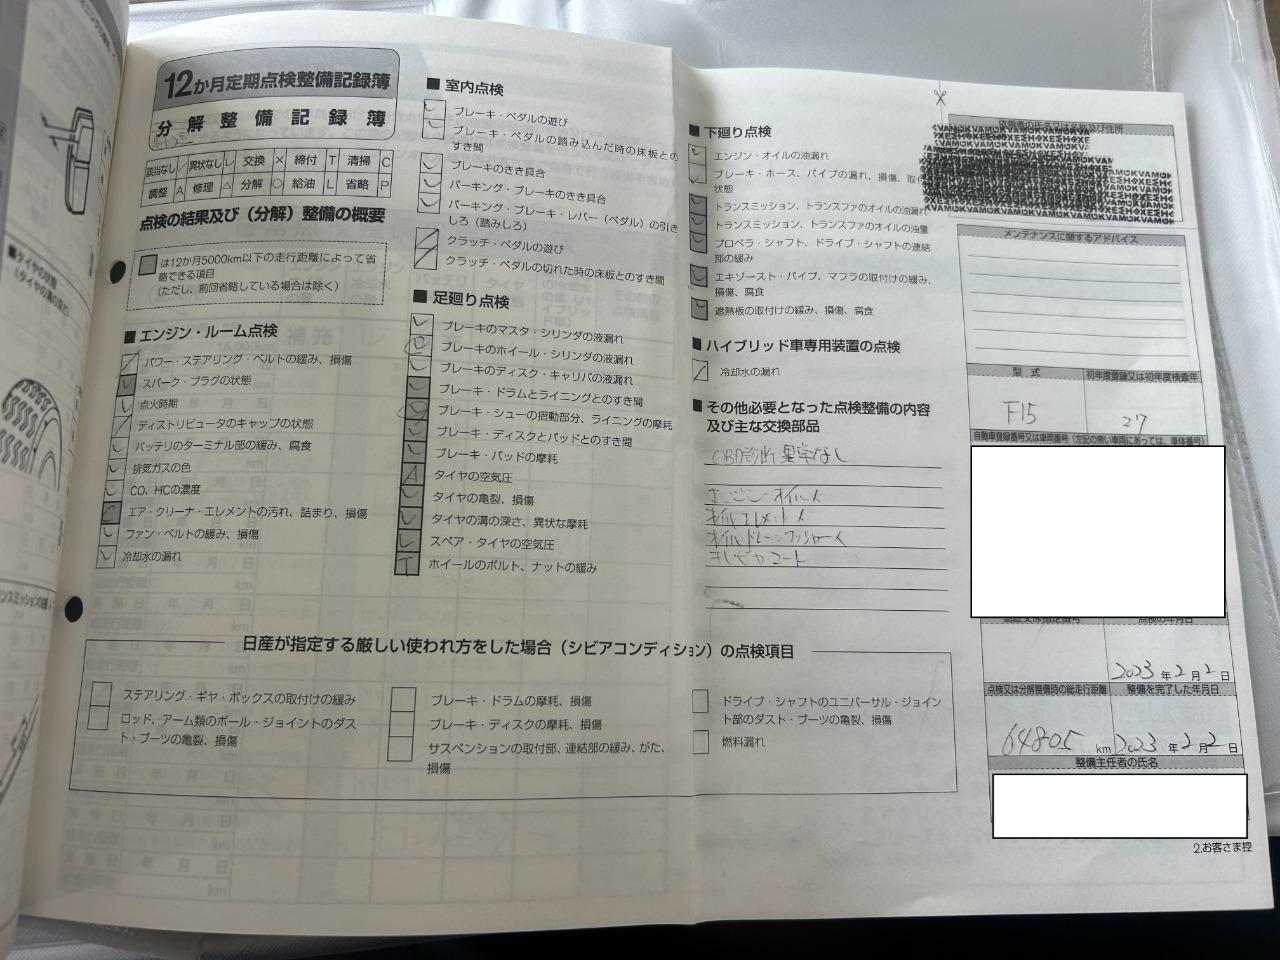 12か月定期点検整備記録簿
分解整備記録簿
該当なし ／ 異状なし レ 交換 × 締付 T 清掃 C
調整 A 修理 △ 分解 ○ 給油 L 省略 P
点検の結果及び（分解）整備の概要
は12か月5000km以下の走行距離によって省
略できる項目
（ただし、前回省略している場合は除く）
■ エンジン・ルーム点検
パワー・ステアリング・ベルトの緩み、損傷
スパーク・プラグの状態
点火時期
ディストリビュータのキャップの状態
バッテリのターミナル部の緩み、腐食
排気ガスの色
CO、HCの濃度
エア・クリーナ・エレメントの汚れ、詰まり、損傷
ファン・ベルトの緩み、損傷
冷却水の漏れ
■ 室内点検
ブレーキ・ペダルの遊び
ブレーキ・ペダルの踏み込んだ時の床板との
すき間
ブレーキのきき具合
パーキング・ブレーキのきき具合
パーキング・ブレーキ・レバー（ペダル）の引き
しろ（踏みしろ）
クラッチ・ペダルの遊び
クラッチ・ペダルの切れた時の床板とのすき間
■ 足廻り点検
ブレーキのマスタ・シリンダの液漏れ
ブレーキのホイール・シリンダの液漏れ
ブレーキのディスク・キャリパの液漏れ
ブレーキ・ドラムとライニングとのすき間
ブレーキ・シューの摺動部分、ライニングの摩耗
ブレーキ・ディスクとパッドとのすき間
ブレーキ・パッドの摩耗
A タイヤの空気圧
タイヤの亀裂、損傷
タイヤの溝の深さ、異状な摩耗
スペア・タイヤの空気圧
T ホイールのボルト、ナットの緩み
■ 下廻り点検
エンジン・オイルの油漏れ
ブレーキ・ホース、パイプの漏れ、損傷、取付
状態
トランスミッション、トランスファのオイルの油漏れ
トランスミッション、トランスファのオイルの油量
プロペラ・シャフト、ドライブ・シャフトの連結
部の緩み
エキゾースト・パイプ、マフラの取付けの緩み、
損傷、腐食
遮熱板の取付けの緩み、損傷、腐食
■ ハイブリッド車専用装置の点検
冷却水の漏れ
■ その他必要となった点検整備の内容
及び主な交換部品
OBD診断 異常なし
エンジンオイル 人
オイルエレメント 〆
オイルドレーンワッシャー 人
依頼者の氏名又は名称及び住所
メンテナンスに関するアドバイス
型式 初年度登録又は初年度検査年
F15 27
自動車登録番号又は車両番号（左記の無い車両にあっては、車体番号）
認証又は指定番号 点検の年月日
2023 年 2 月 2 日
点検又は分解整備時の総走行距離 整備を完了した年月日
64805 km 2023 年 2 月 2 日
整備主任者の氏名
2.お客さま控
日産が指定する厳しい使われ方をした場合（シビアコンディション）の点検項目
ステアリング・ギヤ・ボックスの取付けの緩み
ロッド、アーム類のボール・ジョイントのダス
ト・ブーツの亀裂、損傷
ブレーキ・ドラムの摩耗、損傷
ブレーキ・ディスクの摩耗、損傷
サスペンションの取付部、連結部の緩み、がた、
損傷
ドライブ・シャフトのユニバーサル・ジョイン
ト部のダスト・ブーツの亀裂、損傷
燃料漏れ